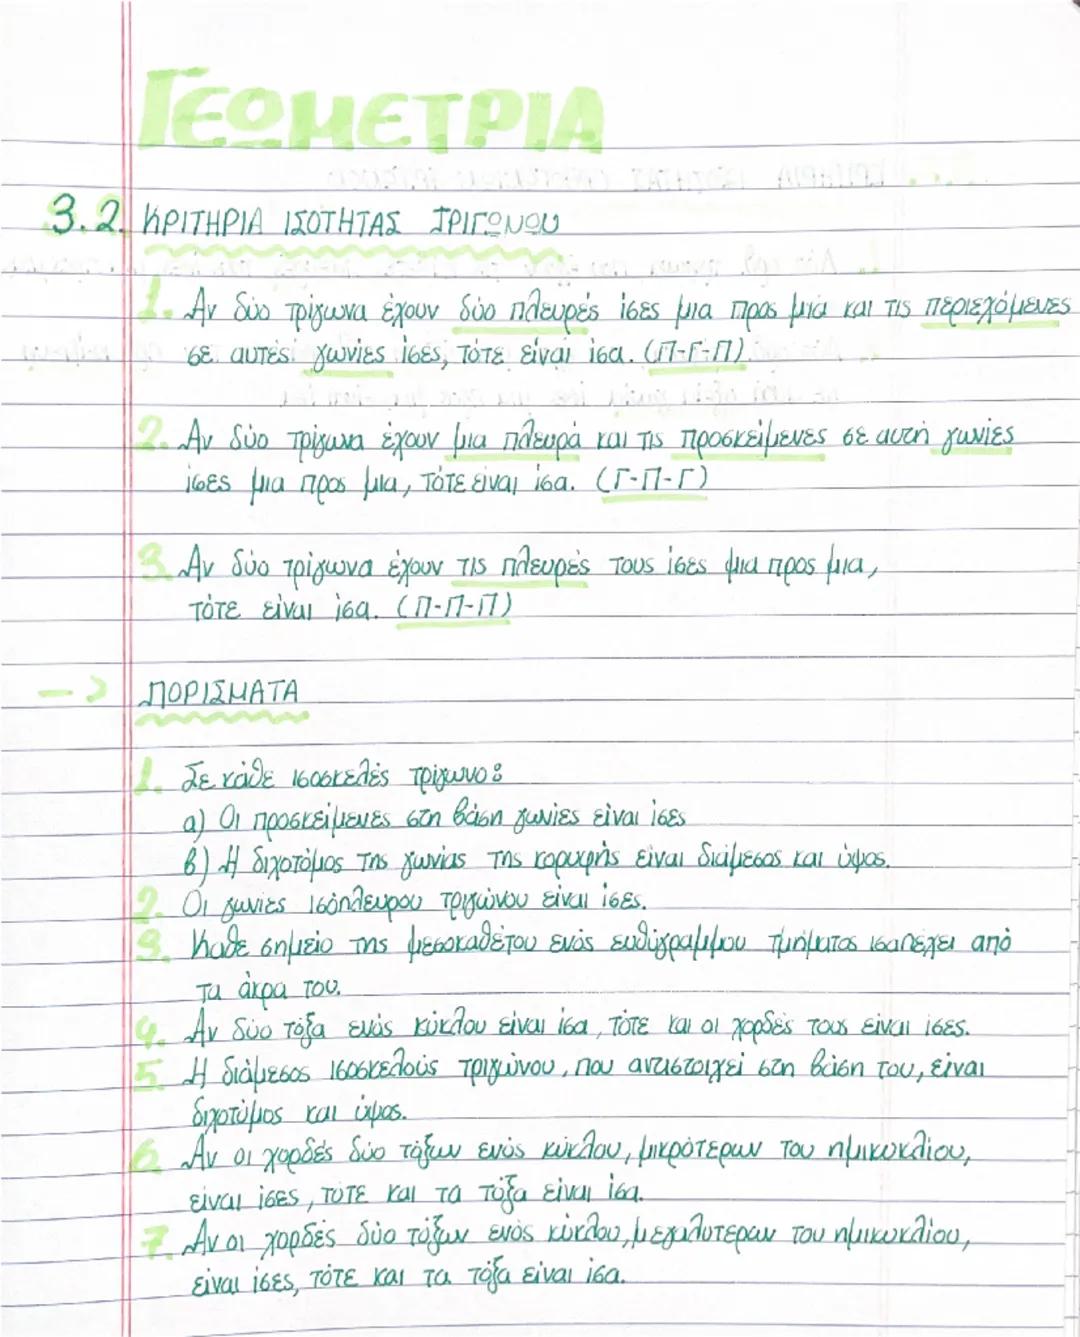 ΓΕΩΜΕΤΡΙΑ
3.2 ΚΡΙΤΗΡΙΑ ΙΣΟΤΗΤΑΣ ΤΡΙΓΩΝΟΥ
1. Αν δύο τρίγωνα έχουν δύο πλευρές ίσες μια προς μιά και τις περιεχόμενες
σε αυτές γωνίες ίσες, τότε είναι ίσα. (Π-Γ-Π)
2. Αν δύο τρίγωνα έχουν μια πλευρά και τις προσκείμενες σε αυτή γωνίες
ίσες μια προς μια, τότε είναι ίσα. (Γ-Π-Γ)
3. Αν δύο τρίγωνα έχουν τις πλευρές τους ίσες μια προς μια,
τότε είναι ίσα. (Π-Π-Π)
-> ΠΟΡΙΣΜΑΤΑ
1. Σε κάθε ισοσκελές τρίγωνο:
α) Οι προσκείμενες στη βάση γωνίες είναι ίσες
β) Η διχοτόμος της γωνίας της κορυφής είναι διάμεσος και ύψος.
2. Οι γωνίες ισόπλευρου τριγώνου είναι ίσες.
3. Κάθε σημείο της μεσοκαθέτου ενός ευθύγραμμου τμήματος ισαπέχει από
τα άκρα του.
4. Αν δύο τόξα ενός κύκλου είναι ίσα, τότε και οι χορδές τους είναι ίσες.
5. Η διάμεσος ισοσκελούς τριγώνου, που αντιστοιχεί στη βάση του, είναι
διχοτόμος και ύψος.
6. Αν οι χορδές δύο τόξων ενός κύκλου, μικρότερων του ημικυκλίου,
είναι ίσες, τότε και τα τόξα είναι ίσα.
7. Αν οι χορδές δύο τόξων ενός κύκλου, μεγαλυτερων του ημικυκλίου,
είναι ίσες, τότε και τα τόξα είναι ίσα.